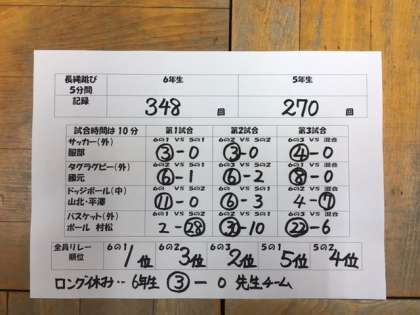 長縄跳び 6年生 5年生
5分間
記録 348 回 270 回
試合時間は10分 第1試合 第2試合 第3試合
サッカー(外) 6の1 VS 5の1 6の2 VS 5の2 6の3 VS 混合
服部 3-0 3-0 4-0
タグラグビー(外) 6の2 VS 5の1 6の3 VS 5の2 6の1 VS 混合
國元 6-1 6-2 8-0
ドッジボール(中)
山北・平澤 11-0 6-3 4-7
バスケット(外)
ポール 村松 2-28 30-10 22-6
全員リレー 6の1 6の2 6の3 5の1 5の2
順位 1位 3位 2位 5位 4位
ロング休み‥6年生 3-0 先生チーム